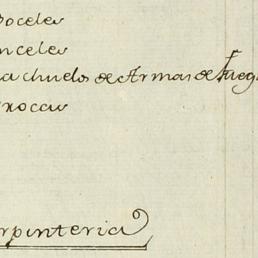 Boceles
inceles
achuelos de Armas de fueg
rocas
rpinteria